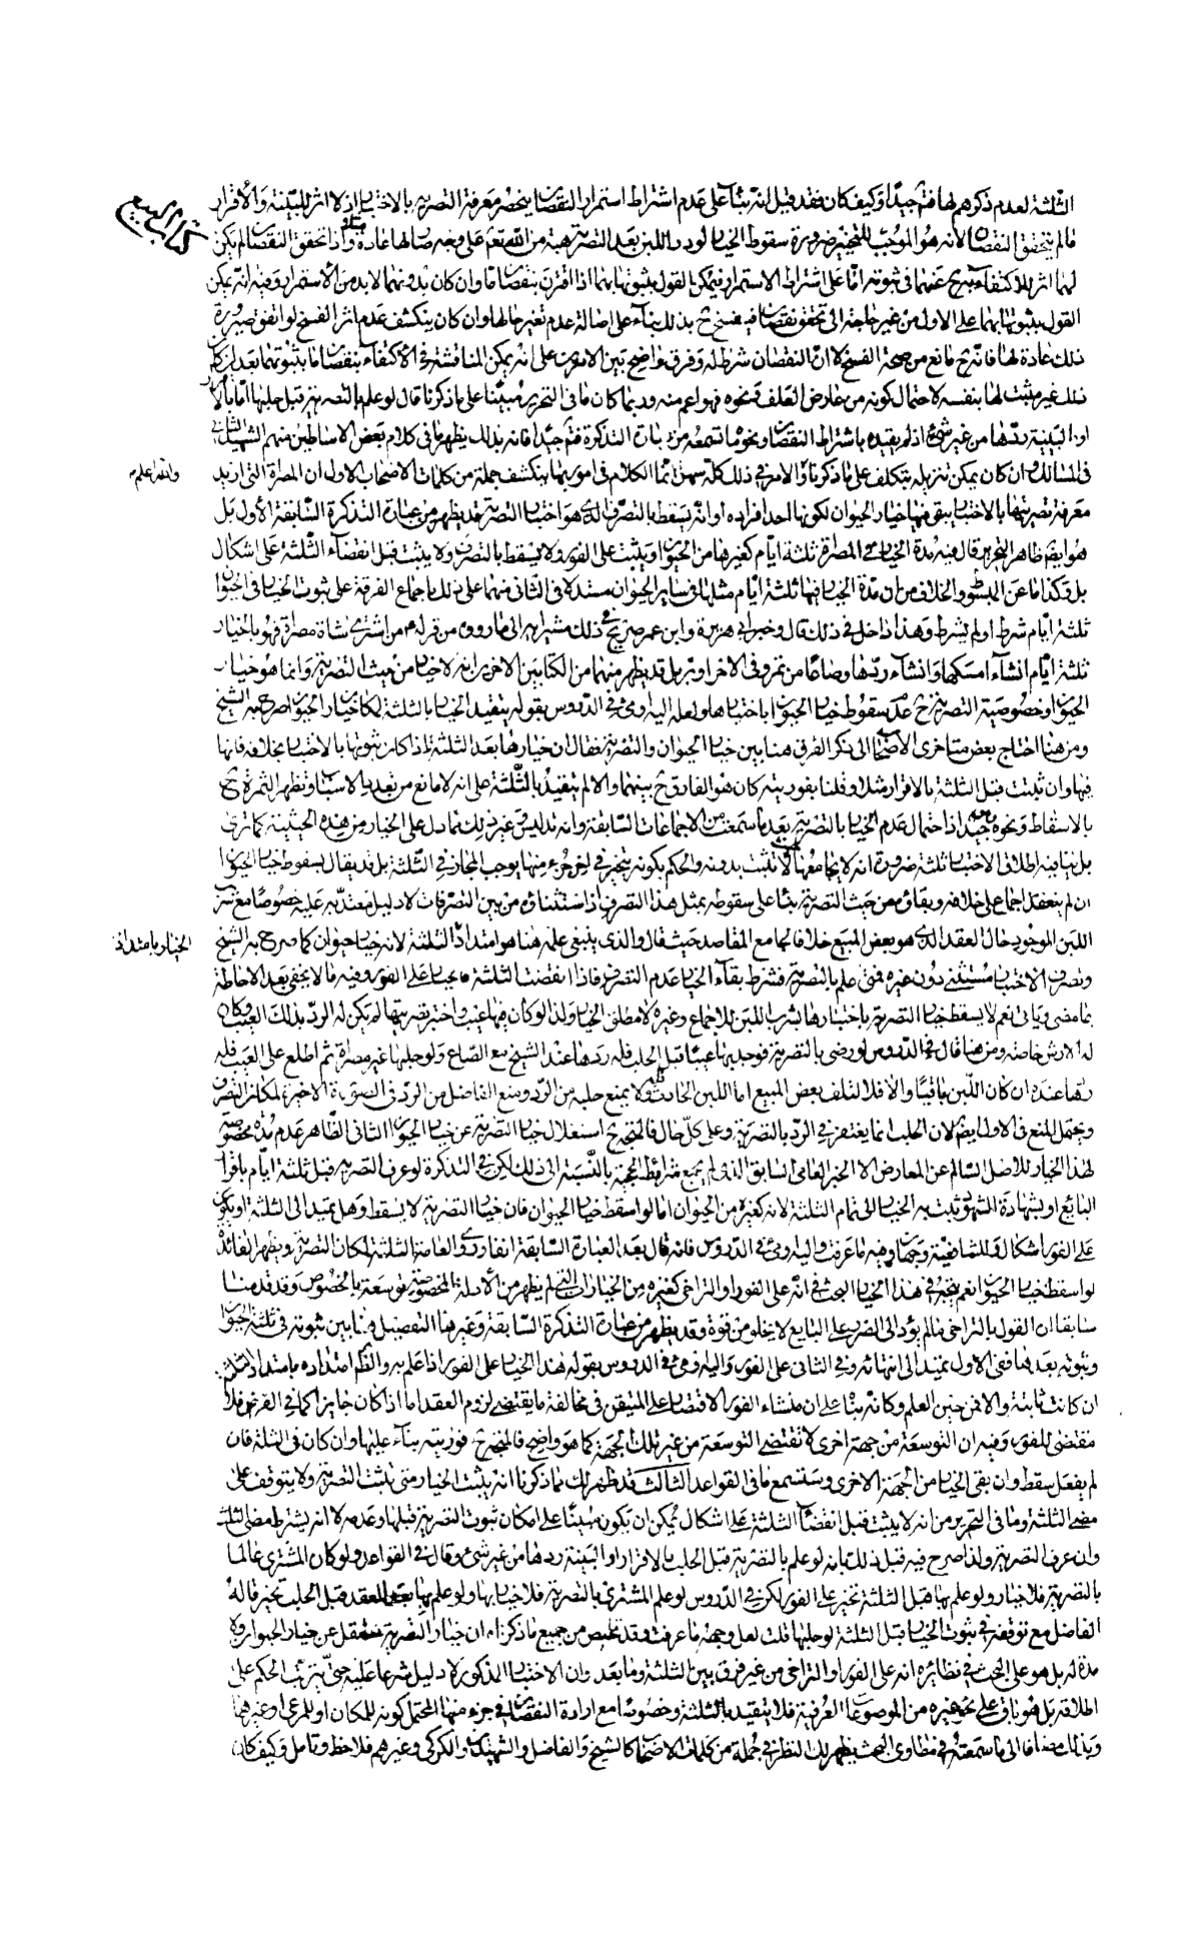 كتاب البيع
الثلثة لعدم ذكرهم لها فتم جيدا وكيف كان فقد قيل انه بناء على عدم اشتراط استمرار النقصان ينحصر معرفة التصرية بالاختبار اذ لا اثر للبينة والأقرار
فالم يتحقق النقصان لأنه هو الموجب للتخيير ضرورة سقوط الخيار لو در اللبن بعد التصرية هبة من الله تعم على وجه صار لها عادة واذا تحقق النقصان لم يكن
لهما اثر للاكتفاء به ح عنهما في ثبوته اما على اشتراط الاستمرار فيمكن القول بثبوتها بهما اذا اقترن بنقصان ما وان كان بدونهما لا بد من الاستمرار وفيه انه يمكن
القول بثبوتها بهما على الاول من غير حاجة الى تحقق نقصان فيفسخ ح بذلك بناء على اصالة عدم تغير حالها وان كان ينكشف عدم اثر الفسخ لو اتفق صيرورة
ذلك عادة لها فانه ح مانع من صحة الفسخ لا ان النقصان شرط له وفرق واضح بين الامرين على انه يمكن المناقشة في الأكتفاء بنقصان ما بثبوتها بعد ان كان
ذلك غير مثبت لها بنفسه لاحتمال كونه من عارض العلف ونحوه فهو اعم منه وربما كان ما في التحرير مبنيا على ما ذكرنا قال لو علم بالتصرية قبل حلبها اما بالاقرار
او البينة ردها من غير شيء اذ لم يقيده باشتراط النقصان ونحو ما تسمعه من عبارة التذكرة فتم جيدا فانه بذلك يظهر ما في كلام بعض الاساطين منهم الشهيد الثاني
في المسالك وان كان يمكن تنزيله بتكلف على ما ذكرنا والامر في ذلك كله سهل انما الكلام في امور بها ينكشف جملة من كلمات الاصحاب الاول ان المصراة التي اريد
والله اعلم
معرفة تصريتها بالاختبار يبقى فيها خيار الحيوان لكونها احد افراده او انه يسقط بالتصرف الذي هو اختبار التصرية قد يظهر من عبارة التذكرة السابقة الأول بل
هو ايضا ظاهر التحرير قال فيه مدة الخيار في المصراة ثلثة ايام كغيرها من الحيوان ويثبت على الفور ولا يسقط بالتصرف ولا يثبت قبل انقضاء الثلثة على اشكال
بل وكذا ما عن المبسوط والخلاف من ان مدة الخيار فيها ثلثة ايام مثلها في ساير الحيوان مستدلا في الثاني منهما على ذلك باجماع الفرقة على ثبوت الخيار في الحيوان
ثلثة ايام شرط او لم يشرط وهذا داخل في ذلك قال وخبر ابي هريرة وابن عمر صريح في ذلك مشيرا به الى ما روى من قوله من اشترى شاة مصراة فهو بالخيار
ثلثة ايام انشاء امسكها وانشاء ردها وصاعا من تمر وفي الاخر او بر بل قد يظهر منهما من الكتابين الاخرين انه لا خيار من حيث التصرية وانما هو خيار
الحيوان وخصوصية التصرية ح عدم سقوط خيار الحيوان باختبارها ولعله اليه اومى في الدروس بقوله بتقييد الخيار بالثلثة لمكان خيار الحيوان صرح به الشيخ
ومن هنا احتاج بعض متأخرى الأصحاب الى ذكر الفرق هنا بين خيار الحيوان والتصرية فقال ان خيارها بعد الثلثة اذا كان ثبوتها بالاختبار بخلافه فانها
فيها وان ثبتت قبل الثلثة بالاقرار مثلا وقلنا بفوريته كان هو الفارق ح بينهما والا لم يتقيد بالثلثة على انه لا مانع من تعدد الاسباب وتظهر الثمرة ح
بالاسقاط ونحوه جيدا اذ احتمال عدم الخيار بالتصرية بعد ما سمعت من الاجماعات السابقة وانه تدليس وغير ذلك مما دل على الخيار من هذه الحيثية كما ترى
بل ينافيه اطلاق الاختبار ثلثة ضرورة انه لا يجامعها الا ان تثبت بدونه والحكم بكونه يتخير في اخر جزء منها يوجب المجاز في الثلثة بل قد يقال بسقوط خيار الحيوان
ان لم ينعقد اجماع على خلافه وبقاؤه من حيث التصرية بناء على سقوطه بمثل هذا التصرف اذ استثناؤه من بين التصرفات لا دليل معتد به عليه خصوصا مع شرب
اللبن الموجود حال العقد الذي هو بعض المبيع خلافا لجامع المقاصد حيث قال والذي ينبغي علمه هنا هو امتداد الثلثة لانه خيار حيوان كما صرح به الشيخ
الخيار بامتداد
وتصرف الاختبار مستثنى دون غيره فمتى علم بالتصرية فشرط بقاء الخيار عدم التصرف فاذا انقضت الثلثة فالخيار على الفور وفيه ما لا يخفى بعد الاحاطة
بما مضى ويأتى نعم لا يسقط خيار التصرية باختبارها بشرب اللبن للاجماع وغيره لا مطلق الخيار ولذا لو كان فيها عيب واختبر تصريتها لم يكن له الرد بذلك العيب وكان
له الارش خاصة ومن هنا قال في الدروس لو رضى بالتصرية فوجد بها عيبا قبل الحلب فله ردها عند الشيخ مع الصاع ولو حلبها غير مصراة ثم اطلع على العيب فله
ردها عنده ان كان اللبن باقيا والا فلا لتلف بعض المبيع اما اللبن الحادث فلا يمنع حلبه من الرد ومنع الفاضل من الرد في الصورة الاخيرة لمكان التصرف
ويحتمل المنع في الاولى ايضا لان الحلب انما يغتفر في الرد بالتصرية وعلى كل حال فالمتجه ح استقلال خيار التصرية عن خيار الحيوان الثاني الظاهر عدم مدة مخصوصة
لهذا الخيار للأصل السالم عن المعارض الا الخبر العامي السابق الذي لم يجمع شرائط الحجية بالنسبة الى ذلك لكن في التذكرة لو عرف التصرية قبل ثلثة ايام باقرار
البائع او بشهادة الشهود ثبت به الخيار الى تمام الثلثة لانه كغيره من الحيوان اما لو اسقط خيار الحيوان فان خيار التصرية لا يسقط وهل يمتد الى الثلثة او يكون
على الفور اشكال وللشافعية وجهان وفيه ما عرفت واليه اومى في الدروس فانه قال بعد العبارة السابقة انفا روى العامة الثلثة لمكان التصرية ويظهر الفائدة
لو اسقط خيار الحيوان نعم يتجه في هذا الخيار البحث في انه على الفور او التراخي كغيره من الخيارات التي لم يظهر من الأدلة المخصوصة توسعة بالخصوص وقد قدمنا
سابقا ان القول بالتراخي ما لم يؤد الى الضرر على البايع لا يخلو من قوة وقد يظهر من عبارة التذكرة السابقة وغيرها التفصيل هنا بين ثبوته في ثلثة الحيوان
وثبوته بعدها ففي الاول يمتد الى انتهائه وفي الثاني على الفور واليه اومى في الدروس بقوله هذا الخيار على الفور اذا علم به والظاهر امتداده بامتداد الثلثة
ان كانت ثابتة والا فمن حين العلم وكانه بناء على ان منشاء الفور الاقتصار على المتيقن في مخالفة ما يقتضي لزوم العقد اما اذا كان جايزا كما في الفرض فلا
مقتضى للفور وفيه ان التوسعة من جهة اخرى لا تقتضي التوسعة من غير تلك الجهة كما هو واضح فالمتجه ح فوريته بناء عليها وان كان في الثلثة فان
لم يفعل سقط وان بقى الخيار من الجهة الاخرى وستسمع ما في القواعد الثالث قد ظهر لك مما ذكرنا انه يثبت الخيار متى ثبتت التصرية ولا يتوقف على
مضي الثلثة وما في التحرير من انه لا يثبت قبل انقضاء الثلثة على اشكال يمكن ان يكون مبنيا على امكان ثبوت التصرية قبلها وعدمه لا انه يشترط مضى الثلثة
وان عرف التصرية ولذا صرح فيه قبل ذلك بانه لو علم بالتصرية قبل الحلب بالاقرار او البينة ردها من غير شيء وقال في القواعد ولو كان المشترى عالما
بالتصرية فلا خيار ولو علم بها قبل الثلثة تخير على الفور لكن في الدروس لو علم المشتري بالتصرية فلا خيار بها ولو علم بها بعد العقد قبل الحلب تخير قاله
الفاضل مع توقفه في ثبوت الخيار قبل الثلثة لو حلبها قلت لعل وجهه ما عرفت وقد تلخص من جميع ما ذكرناه ان خيار التصرية مستقل عن خيار الحيوان ولا
مدة له بل هو على البحث في نظائره انه على الفور او التراخي من غير فرق بين الثلثة وما بعد وان الاختبار المذكور لا دليل شرعا عليه حتى يترتب الحكم على
اطلاقه بل هو باق على نحو غيره من الموضوعات العرفية فلا يتقيد بالثلثة وخصوصا مع ارادة النقصان في جزء منها المحتمل كونه للمكان او للمرعى او غيرها
وبذلك مضافا الى ما سمعته في مطاوى البحث يظهر لك النظر في جملة من كلمات الاصحاب كالشيخ والفاضل والشهيدين والكركي وغيرهم فلاحظ وتامل وكيف كان